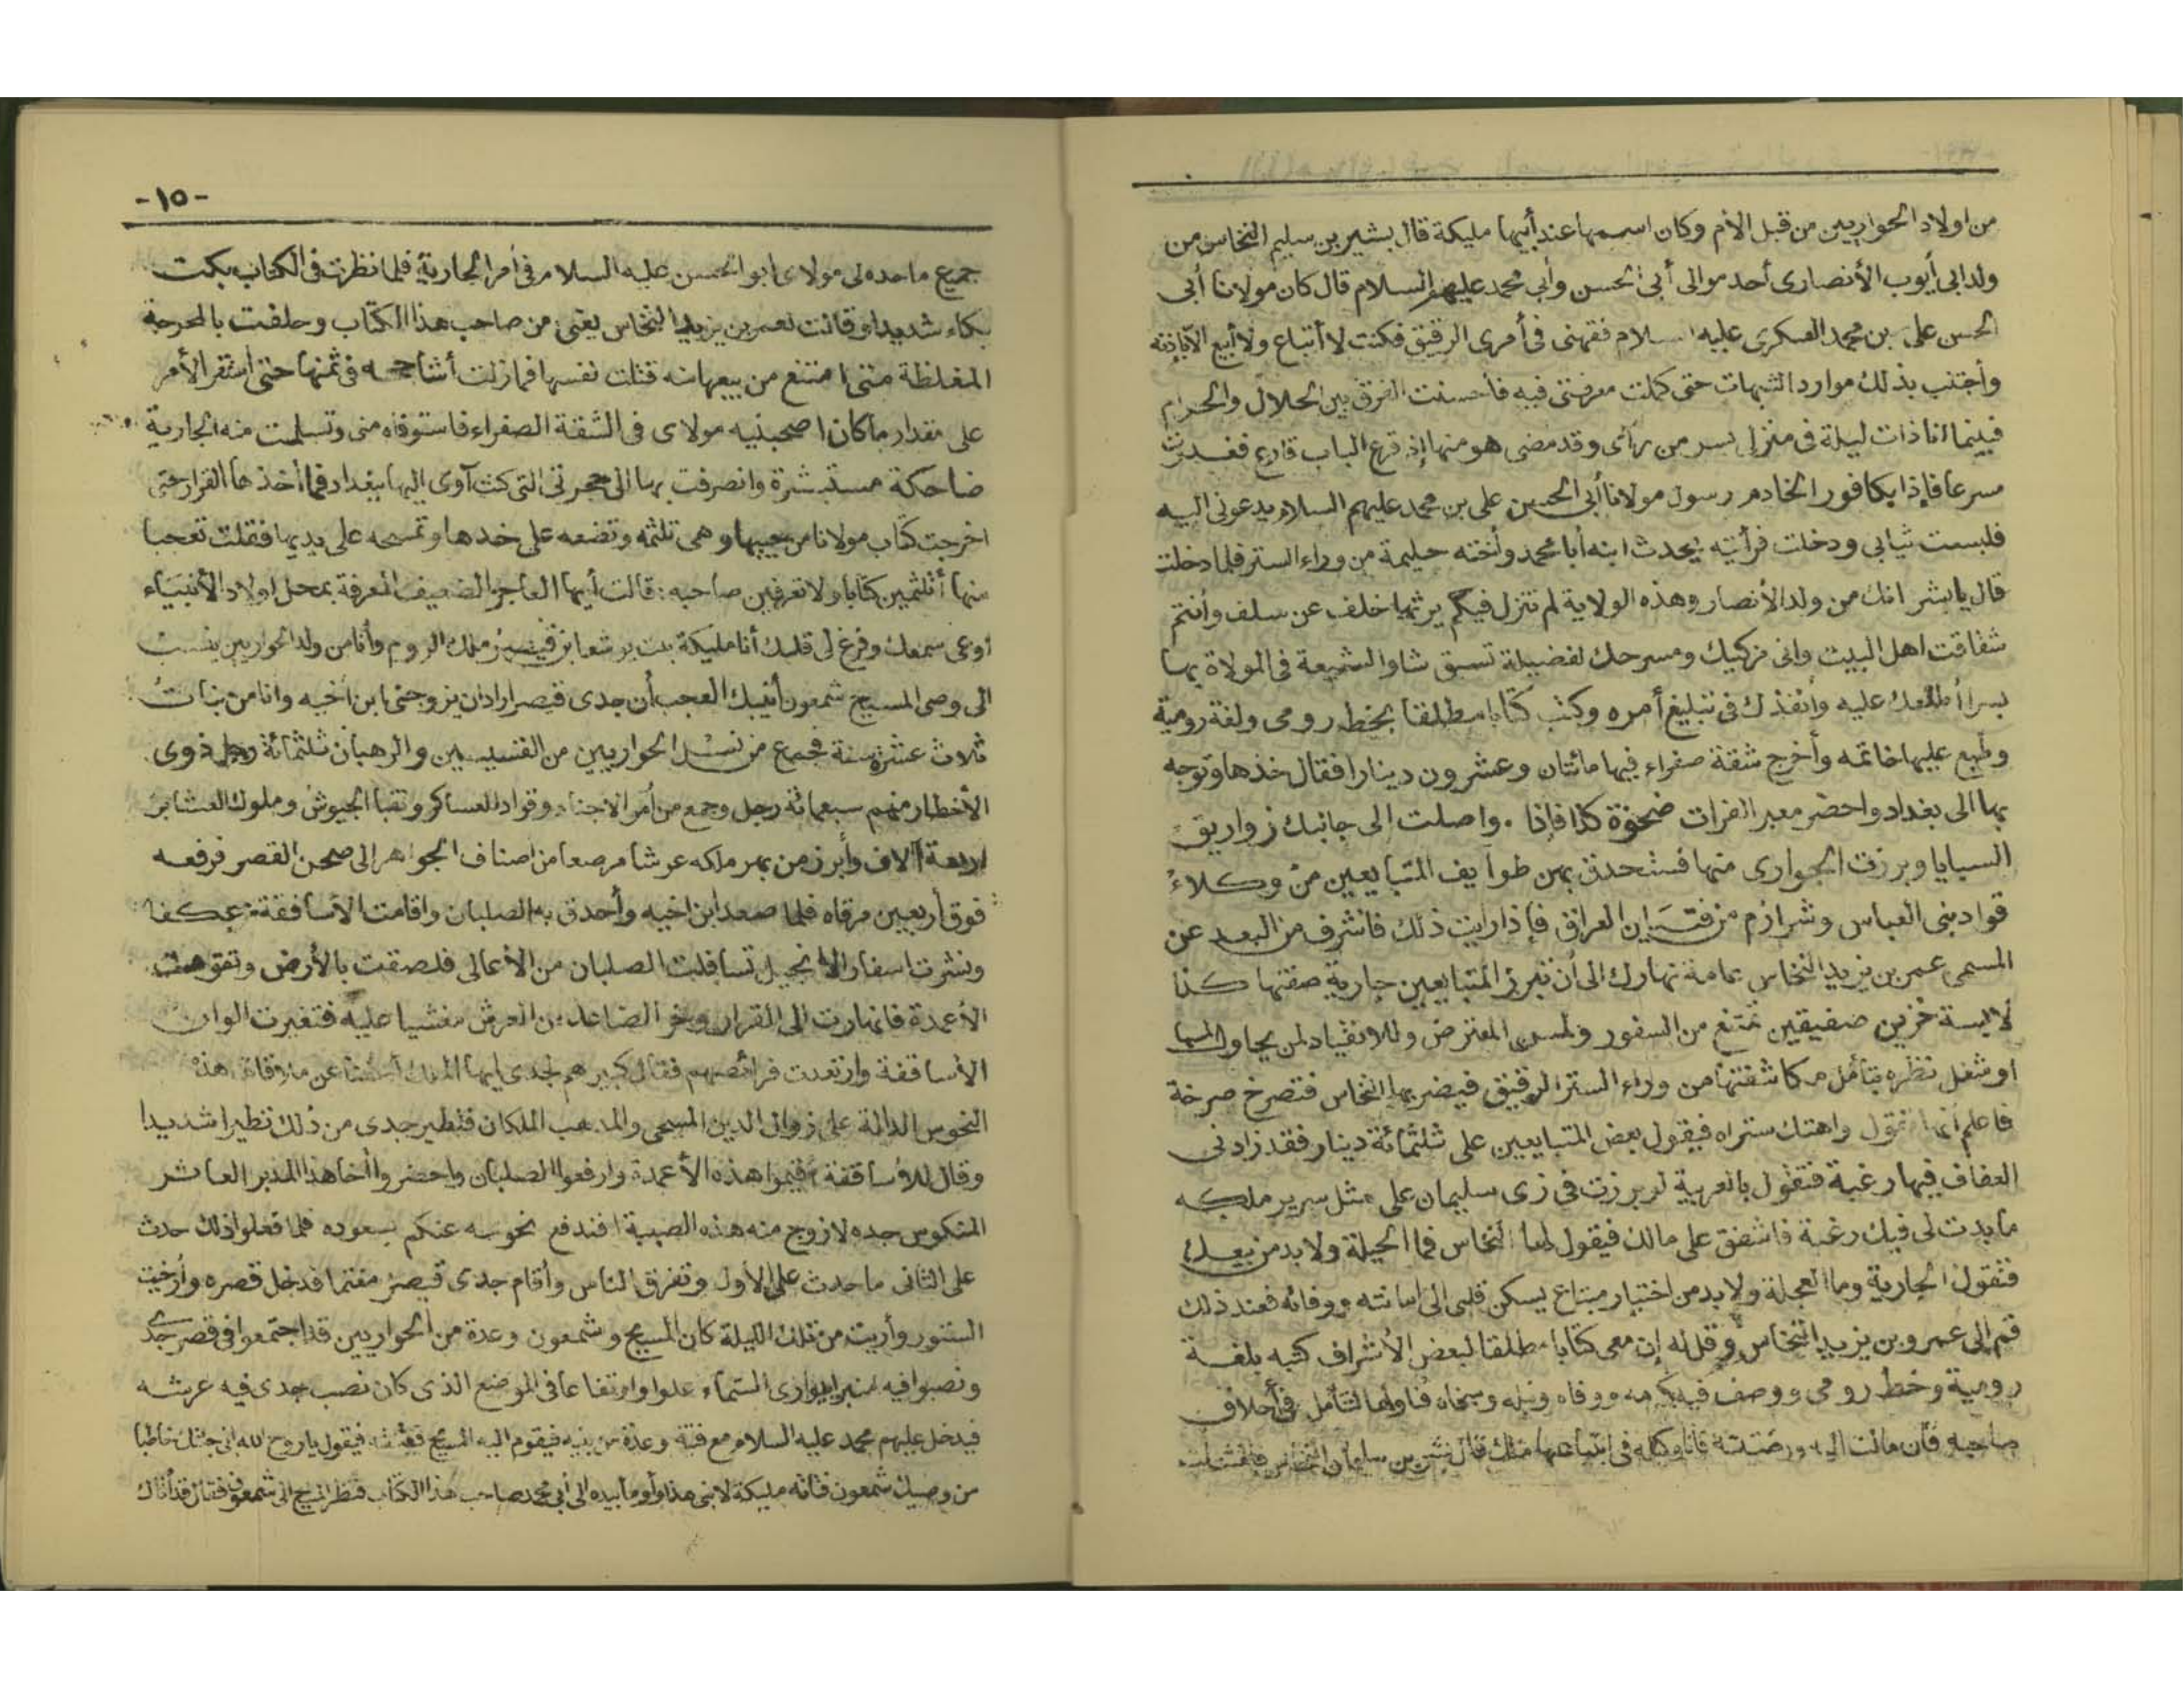 من اولاد الحواريين من قبل الأم وكان اسمها عند أبيها مليكة قال بشير بن سليم النخاس من
ولد ابى أيوب الأنصارى أحد موالى أبى الحسن وأبى محمد عليهم السلام قال كان مولانا أبى
الحسن على بن محمد العسكرى عليه السلام فقهنى فى أمرى الرقيق فكنت لا أبتاع ولا أبيع الا باذنه
وأجتنب بذلك موارد الشبهات حتى كملت معرفتى فيه فأحسنت الفرق بين الحلال والحرام
فبينما انا ذات ليلة فى منزلى بسر من رآى وقد مضى هو منها إذ قرع الباب قارع فغدوت
مسرعا فإذا بكافور الخادم رسول مولانا أبى الحسن على بن محمد عليهم السلام يدعونى اليه
فلبست ثيابى ودخلت فرأيته يحدث ابنه أبا محمد وأخته حليمة من وراء الستر فلما دخلت
قال يا بشر انك من ولد الأنصار وهذه الولاية لم تنزل فيكم يرثها خلف عن سلف وأنتم
ثقاقت اهل البيت وانى مزكيك ومسرحك لفضيلة تسبق شاو الشيعة فى المولاة بها
بسر أطلعك عليه وأنفذك فى تبليغ أمره وكتب كتابا مطلقا بخط رومى ولغة رومية
وطبع عليها خاتمه وأخرج شقة صفراء فيها مائتان وعشرون دينارا فقال خذها وتوجه
بها الى بغداد واحضر معبر الفرات ضحوة كذا فإذا واصلت الى جانبك زواريق
السبايا وبرزت الجوارى منها فستحدق بهن طوايف المتبايعين من وكلاء
قواد بنى العباس وشرازم من فتيان العراق فإذا رايت ذلك فاشرف من البعد عن
المسمى عمر بن يزيد النخاس عامة نهارك الى أن تبرز المتبايعين جارية صفتها كذا
لابسة خزين صفيقين تمتنع من السفور ولمس المعترض وللانقياد لمن يحاول لمسها
او شغل نظره بتأمل مكاشفتها من وراء الستر الرقيق فيضربها النخاس فتصرخ صرخة
فاعلم أنها تقول واهتك ستراه فيقول بعض المتبايعين على ثلثمائة دينار فقد زادنى
العفاف فيها رغبة فتقول بالعربية لو برزت فى زى سليمان على مثل سرير ملكه
ما بدت لى فيك رغبة فاشفق على مالك فيقول لها النخاس فما الحيلة ولا بد من بيعك
فتقول الجارية وما العجلة ولا بد من اختيار مبتاع يسكن قلبى الى امانته ووفائه فعند ذلك
قم إلى عمرو بن يزيد النخاس وقل له إن معى كتابا مطلقا لبعض الأشراف كتبه بلغة
رومية وخط رومى ووصف فيه كرمه ووفاه ونبله وسخاه فناولها لتتأمل فى أخلاق
صاحبه فأن مالت اليه ورضيته فانا وكيله فى ابتياعها منك قال بشر بن سليمان النخاس فامتثلت
-١٥-
جميع ما حده لى مولاى ابو الحسن عليه السلام فى أمر الجارية فلما نظرت فى الكتاب بكت
بكاء شديدا وقالت لعمر بن يزيد النخاس بعنى من صاحب هذا الكتاب وحلفت بالمحرجة
المغلظة متى امتنع من بيعها منه قتلت نفسها فما زلت أشاححه فى ثمنها حتى استقر الأمر
على مقدار ما كان اصحبنيه مولاى فى الشقة الصفراء فاستوفاه منى وتسلمت منه الجارية
ضاحكة مستبشرة وانصرفت بها الى حجرتى التى كنت آوى اليها ببغداد فما أخذها القرار حتى
اخرجت كتاب مولانا من جيبها وهى تلثمه وتضعه على خدها وتمسحه على يديها فقلت تعجبا
منها أتلثمين كتابا ولا تعرفين صاحبه : قالت أيها العاجز الضعيف المعرفة بمحل اولاد الأنبياء
أوعى سمعك وفرغ لى قلبك أنا مليكة بنت يرشعا بن قيصر ملك الروم وأنا من ولد الحواريين ينسب
الى وصى المسيح شمعون أنبيك العجب أن جدى قيصر اراد ان يزوجنى ابن أخيه وانا من بنات
ثلاث عشرة سنة فجمع من نسل الحواريين من القسيسين والرهبان ثلثمائة رجل ذوى
الأخطار منهم سبعمائة رجل وجمع من أمر الاجناد وقواد العساكر ونقبا الجيوش وملوك العشاير
اربعة آلاف وأبرز من بهر ملكه عرشا مرصعا من اصناف الجواهر إلى صحن القصر فرفعه
فوق أربعين مرقاه فلما صعد ابن اخيه وأحدق به الصلبان واقامت الأساقفة عكفا
ونشرت اسفار الانجيل تسافلت الصلبان من الأعالى فلصقت بالأرض وتقوضت
الأعمدة فانهارت الى القرار وخر الصاعد من العرش مغشيا عليه فتغيرت الوان
الأساقفة وارتعدت فرائصهم فقال كبيرهم لجدى ايها الملك اعفنا عن ملاقاة هذه
النحوس الدالة على زوال الدين المسيحى والمذهب الملكان فتطير جدى من ذلك تطيرا شديدا
وقال للأساقفة أقيموا هذه الأعمدة وارفعوا الصلبان واحضروا أخا هذا المدبر العاشر
المنكوس جده لازوج منه هذه الصبية فندفع نحوسه عنكم بسعوده فلما فعلوا ذلك حدث
على الثانى ما حدث على الأول وتفرق الناس وأقام جدى قيصر مغتما فدخل قصره وأرخيت
الستور وأريت من تلك الليلة كان المسيح وشمعون وعدة من الحواريين قد اجتمعوا فى قصر جدى
ونصبوا فيه منبرا يوارى السماء علوا وارتفاعا فى الموضع الذى كان نصب جدى فيه عرشه
فيدخل عليهم محمد عليه السلام مع فتية وعدة من بنيه فيقوم اليه المسيح فيقول يا روح الله انى جئتك خاطبا
من وصيك شمعون فتاته مليكة لابنى هذا وأومأ بيده إلى أبى محمد صاحب هذا الكتاب فنظر المسيح الى شمعون فقال قد أتاك